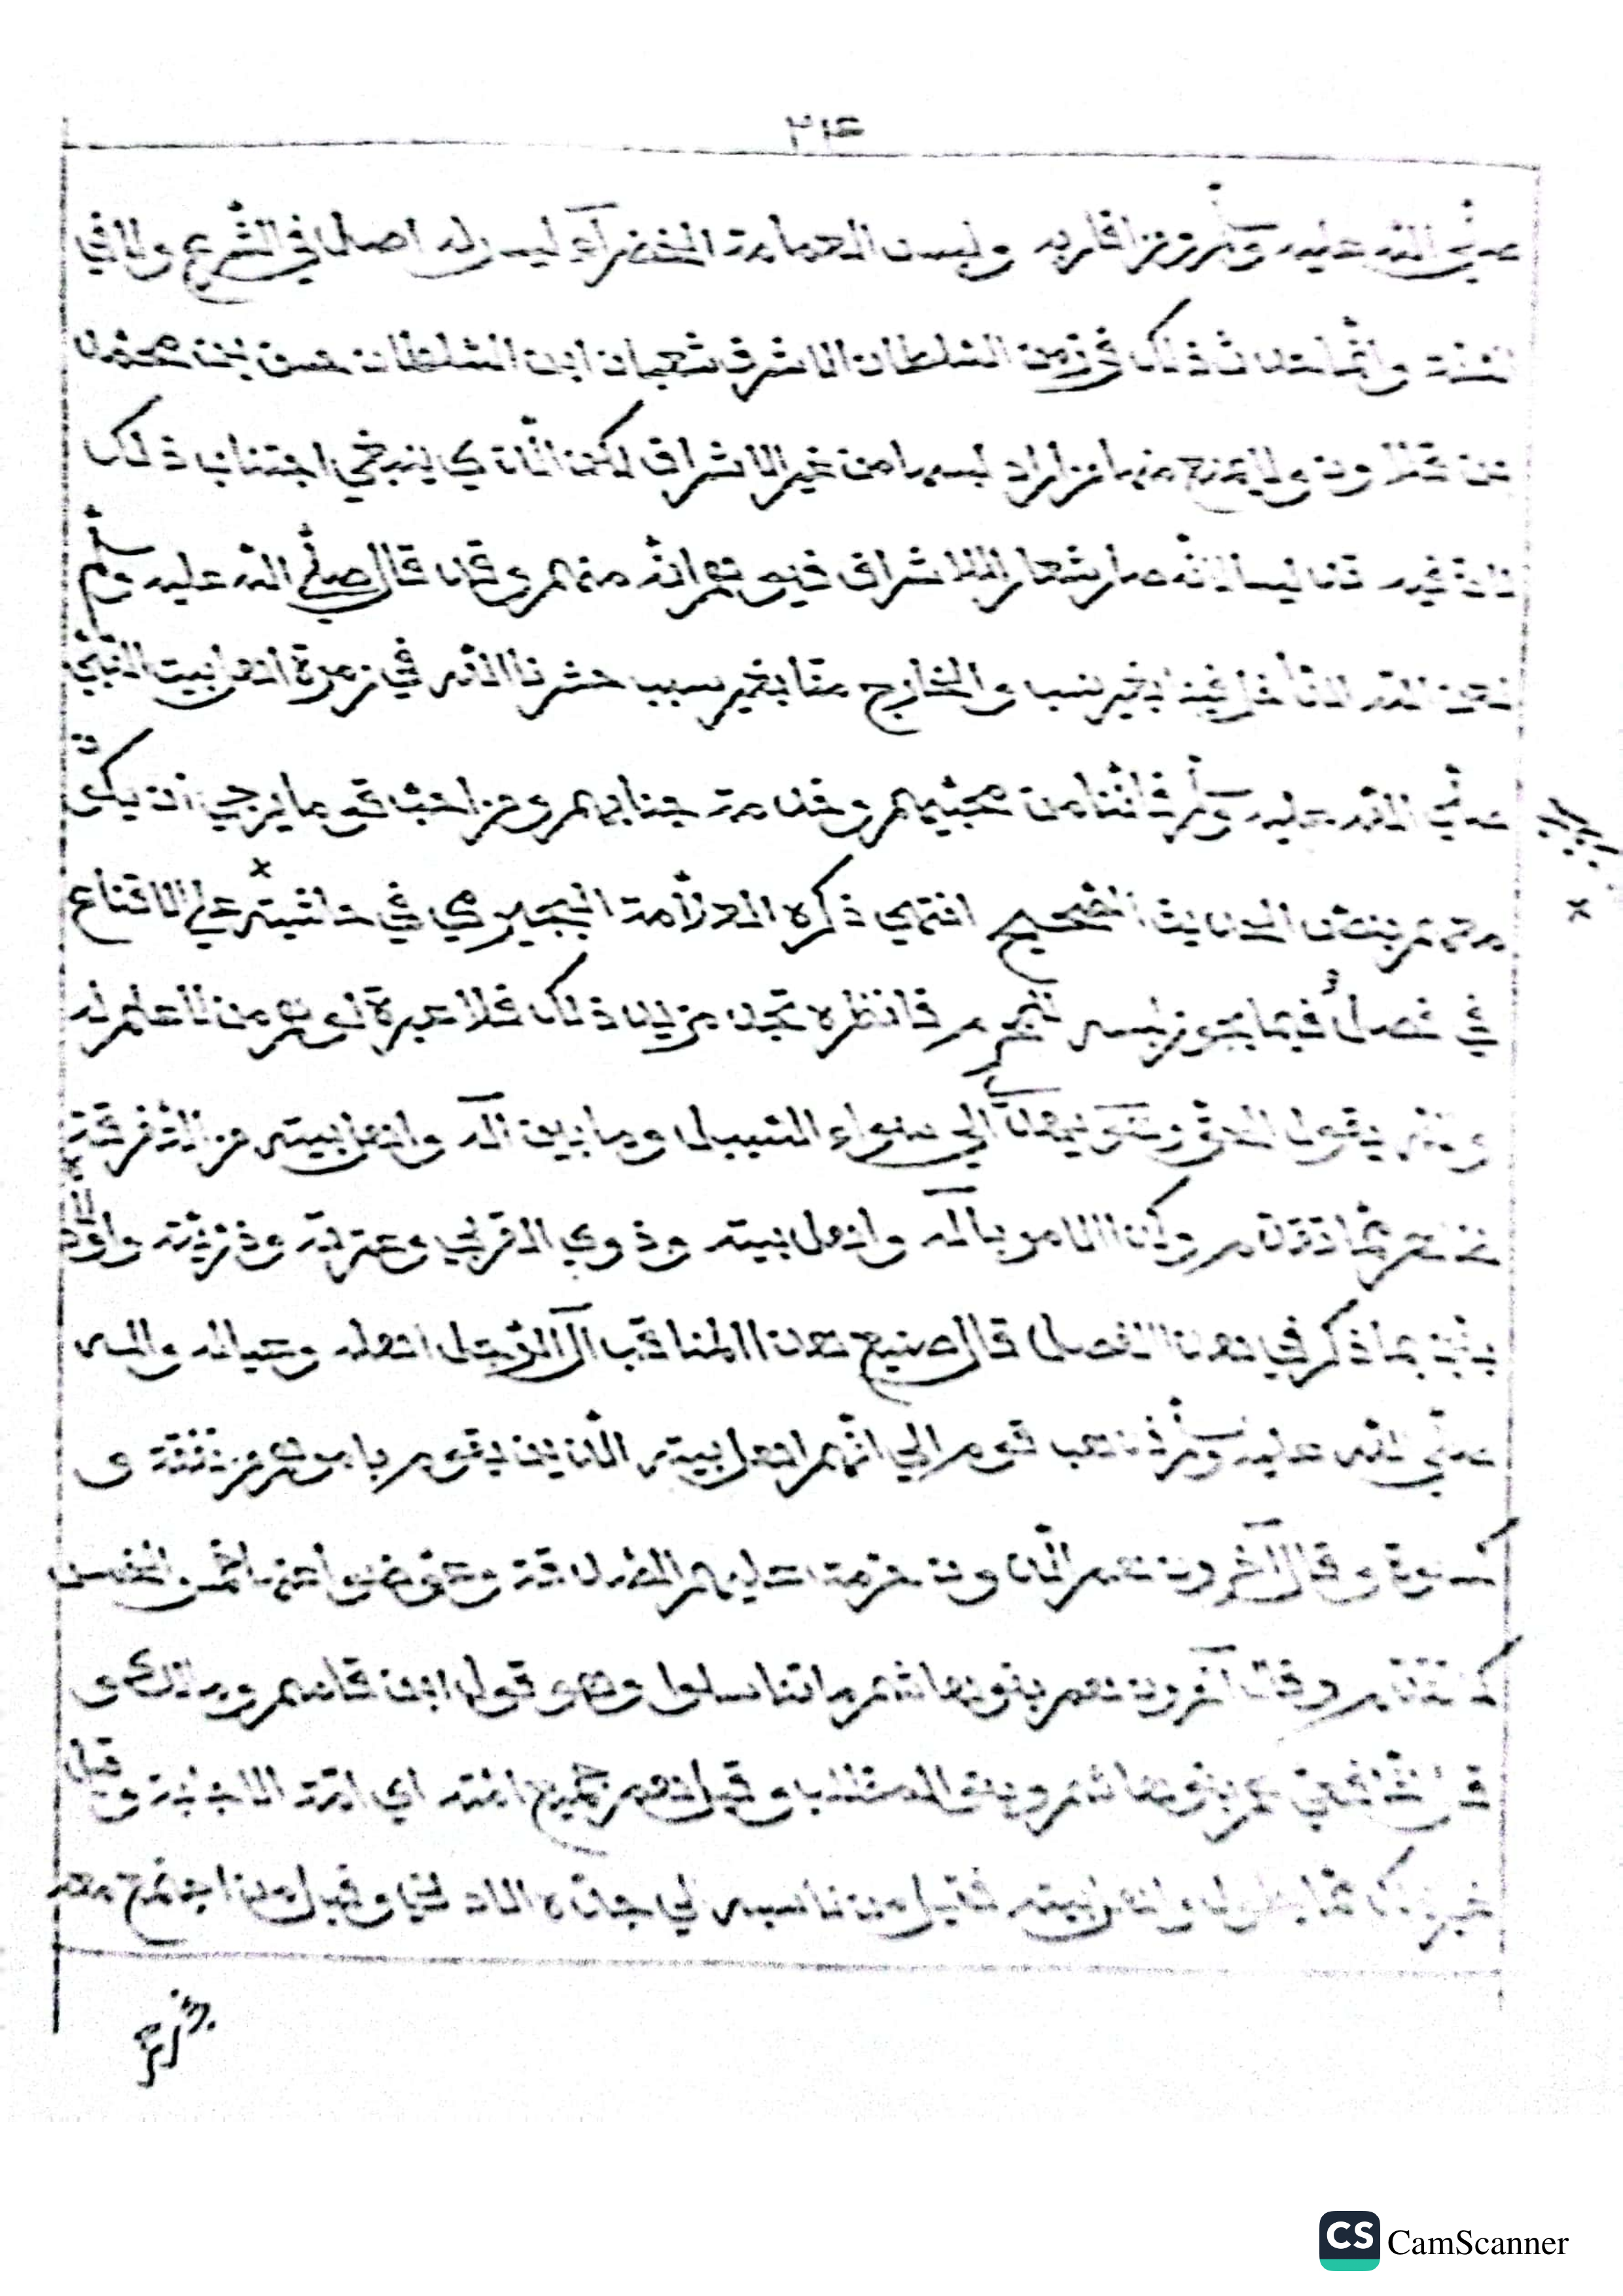 ٢١٤
صلى الله عليه وسلم من اقاربه ولبس العمامة الخضراء ليس له اصل في الشرع ولا في
السنة وانما حدث ذلك في زمن السلطان الاشرف شعبان ابن السلطان حسن بن محمد
بن قلاوون ولا يمنع منها من اراد لبسها من غير الاشراف لكن الذي ينبغي اجتناب ذلك
لان غيره قد لبسا لانه صار شعار الاشراف فيوهم انه منهم وقد قال صلى الله عليه وسلم
لعن الله الداخل فينا بغير نسب والخارج منا بغير سبب حشرنا الله في زمرة اهل بيت النبي
صلى الله عليه وسلم فاننا من محبيهم وخدمة جنابهم ومن احب قوما يرجى ان يكون
معهم بنص الحديث الصحيح انتهى ذكره العلامة البجيرمي في حاشيته على الاقناع
في فصل فيما يجوز لبسه للمحرم فانظره تجد مزيد ذلك فلا عبرة لوهم من لا علم له
والله يقول الحق وهو يهدي الى سواء السبيل وما بين آله واهل بيته من التفرقة
تعلم مما تقدم وكذا الامر بآله واهل بيته وذوي القربى وعترته وذريته واولاد
بنته بما ذكر في هذا الفصل قال صنيع هذا المناقب آل الرجل اهله وعياله وآله
صلى الله عليه وسلم ذهب قوم الى انهم اهل بيته الذين يقوم بامورهم من نفقة و
كسوة وقال آخرون هم الذين حرمت عليهم الصدقة وعوضوا عنها خمس الخمس
كما تقدم وقال آخرون هم بنو هاشم ما تناسلوا وهو قول ابن قاسم ومالك و
قال الشافعي هم بنو هاشم وبنو المطلب وقيل هم جميع امته اي امة الاجابة وقيل
غير ذلك مما يطول واهل بيته فقيل من ناسبه الى جده الادنى وقيل من اجتمع معه